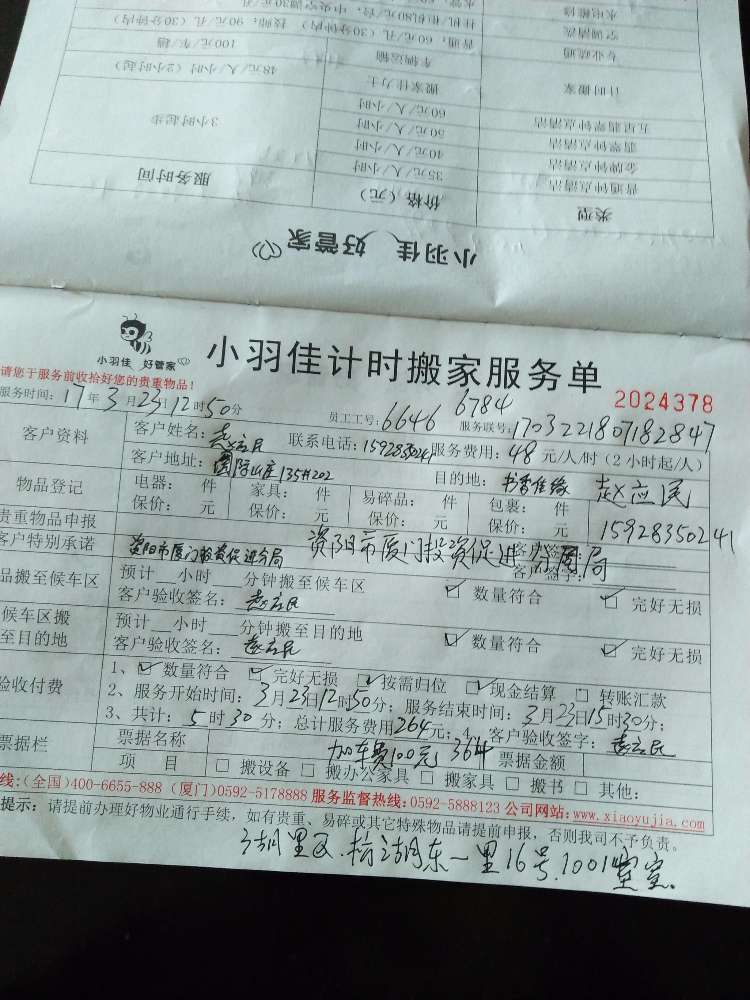 水电维修
空调清洗 挂机 柜机80元/台，中央空调30元/孔
专业疏通 普通：60元/孔（30分钟内） 技师：90元/孔（30分钟内）
车辆运输 100元/车/趟
计时搬家 搬家佳力士 48元/人/小时（2小时起）
五星翡翠钟点清洁 60元/人/小时
翡翠钟点清洁 50元/人/小时 3小时起步
金牌钟点清洁 40元/人/小时
普通钟点清洁 35元/人/小时
类型 价格（元） 服务时间
小羽佳 好管家
小羽佳 好管家
小羽佳计时搬家服务单
请您于服务前收拾好您的贵重物品！
2024378
服务时间：17年3月23日12时50分 员工工号：6646 6784 服务联号：1703221807182847
客户资料 客户姓名：赵应民 联系电话：15928350241 服务费用：48元/人/时（2小时起/人）
客户地址：国际山庄135#202 目的地：书香佳缘 赵应民
物品登记 电器： 件 家具： 件 易碎品： 件 包裹： 件
保价： 元 保价： 元 保价： 元 保价： 元 15928350241
贵重物品申报
客户特别承诺 资阳市厦门投资促进分局 资阳市厦门投资促进分局 客户签字：
品搬至候车区 预计 小时 分钟搬至候车区 数量符合 完好无损
客户验收签名：赵应民
候车区搬至目的地 预计 小时 分钟搬至目的地 数量符合 完好无损
客户验收签名：赵应民
验收付费 1、数量符合 完好无损 按需归位 现金结算 转账汇款
2、服务开始时间：3月23日12时50分；服务结束时间：3月23日15时30分；
3、共计：5时30分；总计服务费用264元；4、客户验收签字：赵应民
票据栏 票据名称 加车费100元 364 票据金额
项 目 搬设备 搬办公家具 搬家具 搬书 其他：
线:(全国)400-6655-888 (厦门)0592-5178888 服务监督热线:0592-5888123 公司网站:www.xiaoyujia.com
提示：请提前办理好物业通行手续，如有贵重、易碎或其它特殊物品请提前申报，否则我司不予负责。
湖里区 枋湖东一里16号.1001室